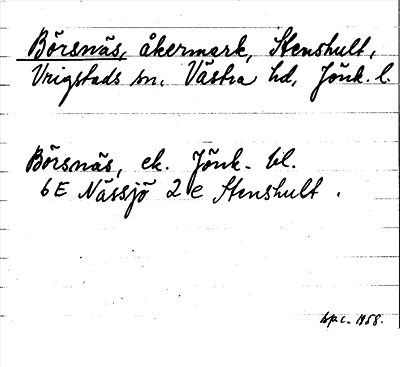 Börsnäs, åkermark, Stenshult,
Vrigstads sn. Västra hd, Jönk. l.
Börsnäs, ek. Jönk. bl.
6E Nässjö 2 e Stenshult .
1958.